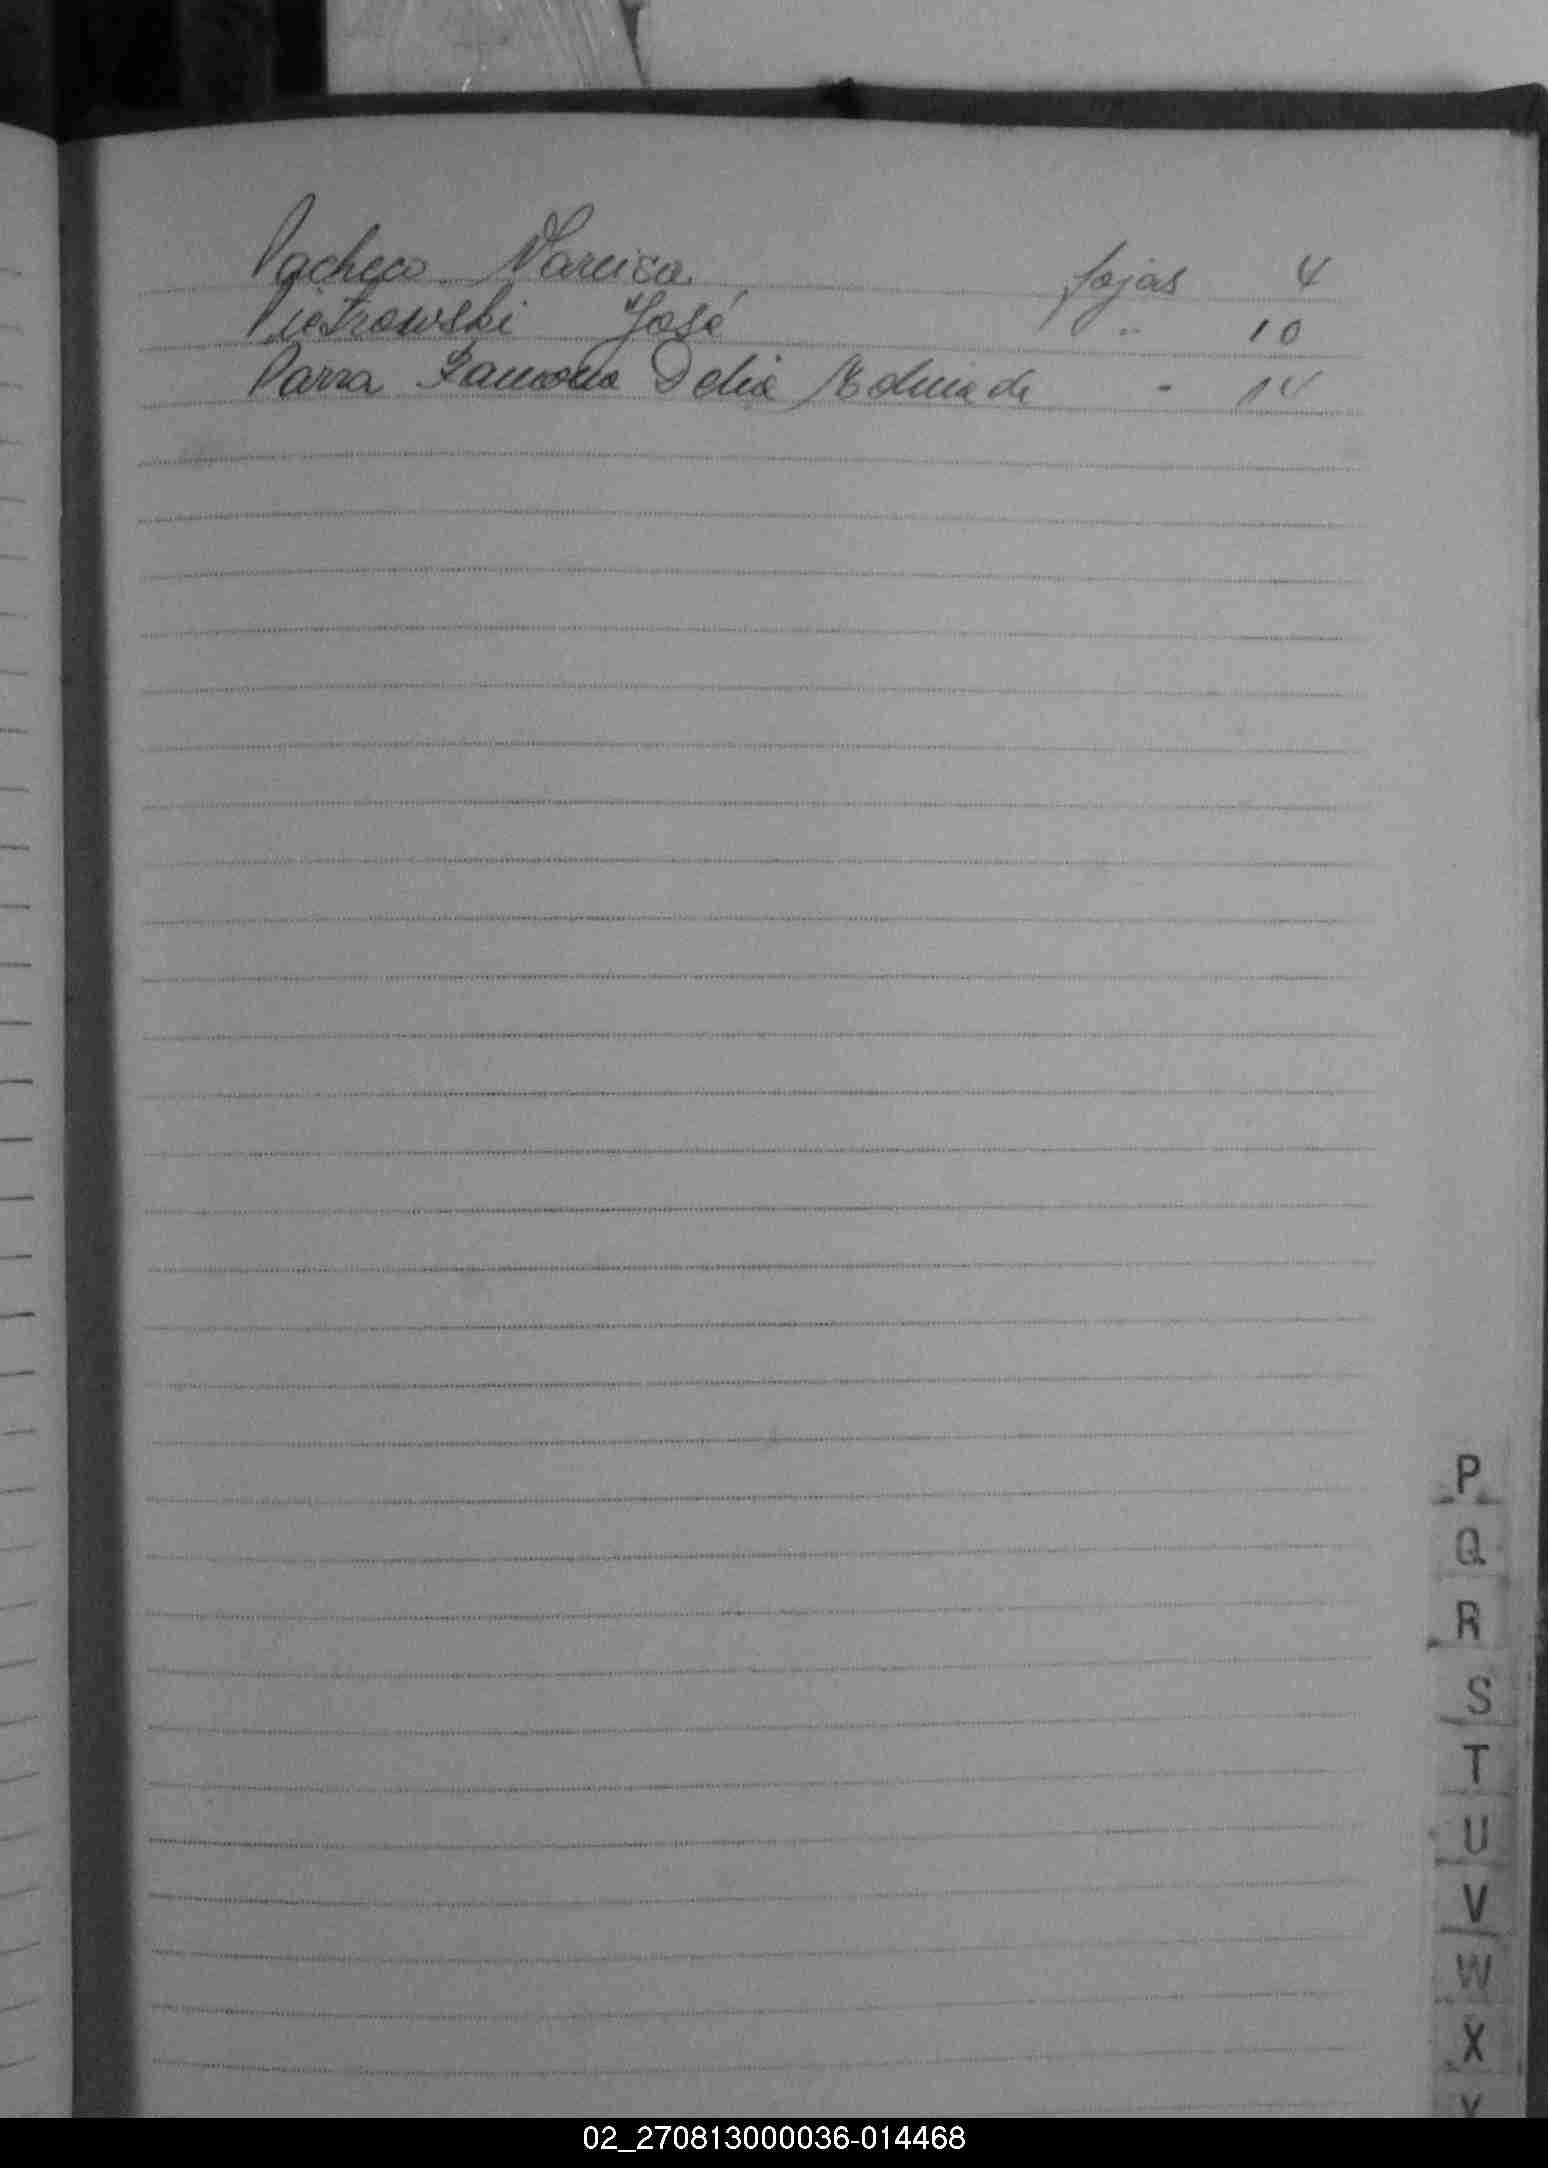 Pacheco Narcisa fojas 4
Pietrowski José " 10
Parra Ramona Delia Molina de " 14
P
Q
R
S
T
U
V
W
X
Y
02_270813000036-014468